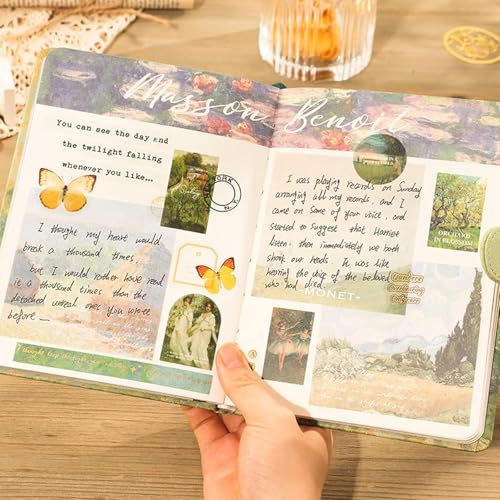 Masson Benoit
You can see the day end
the twilight falling
whenever you like...
YORK
N.Y.
I thought my heart would
break a thousand times.
but I would rather have read
it a thousand times than the
detached unreal ones you wrote
before
I was playing records on Sunday
arranging all my records, and I
came on some of your voice, and
started to suggest that Harriet
listen. then immediately we both
shook our heads. It was like
hearing the voice of the beloved
who had died.
-MONET-
ORCHARD
IN BLOSSOM